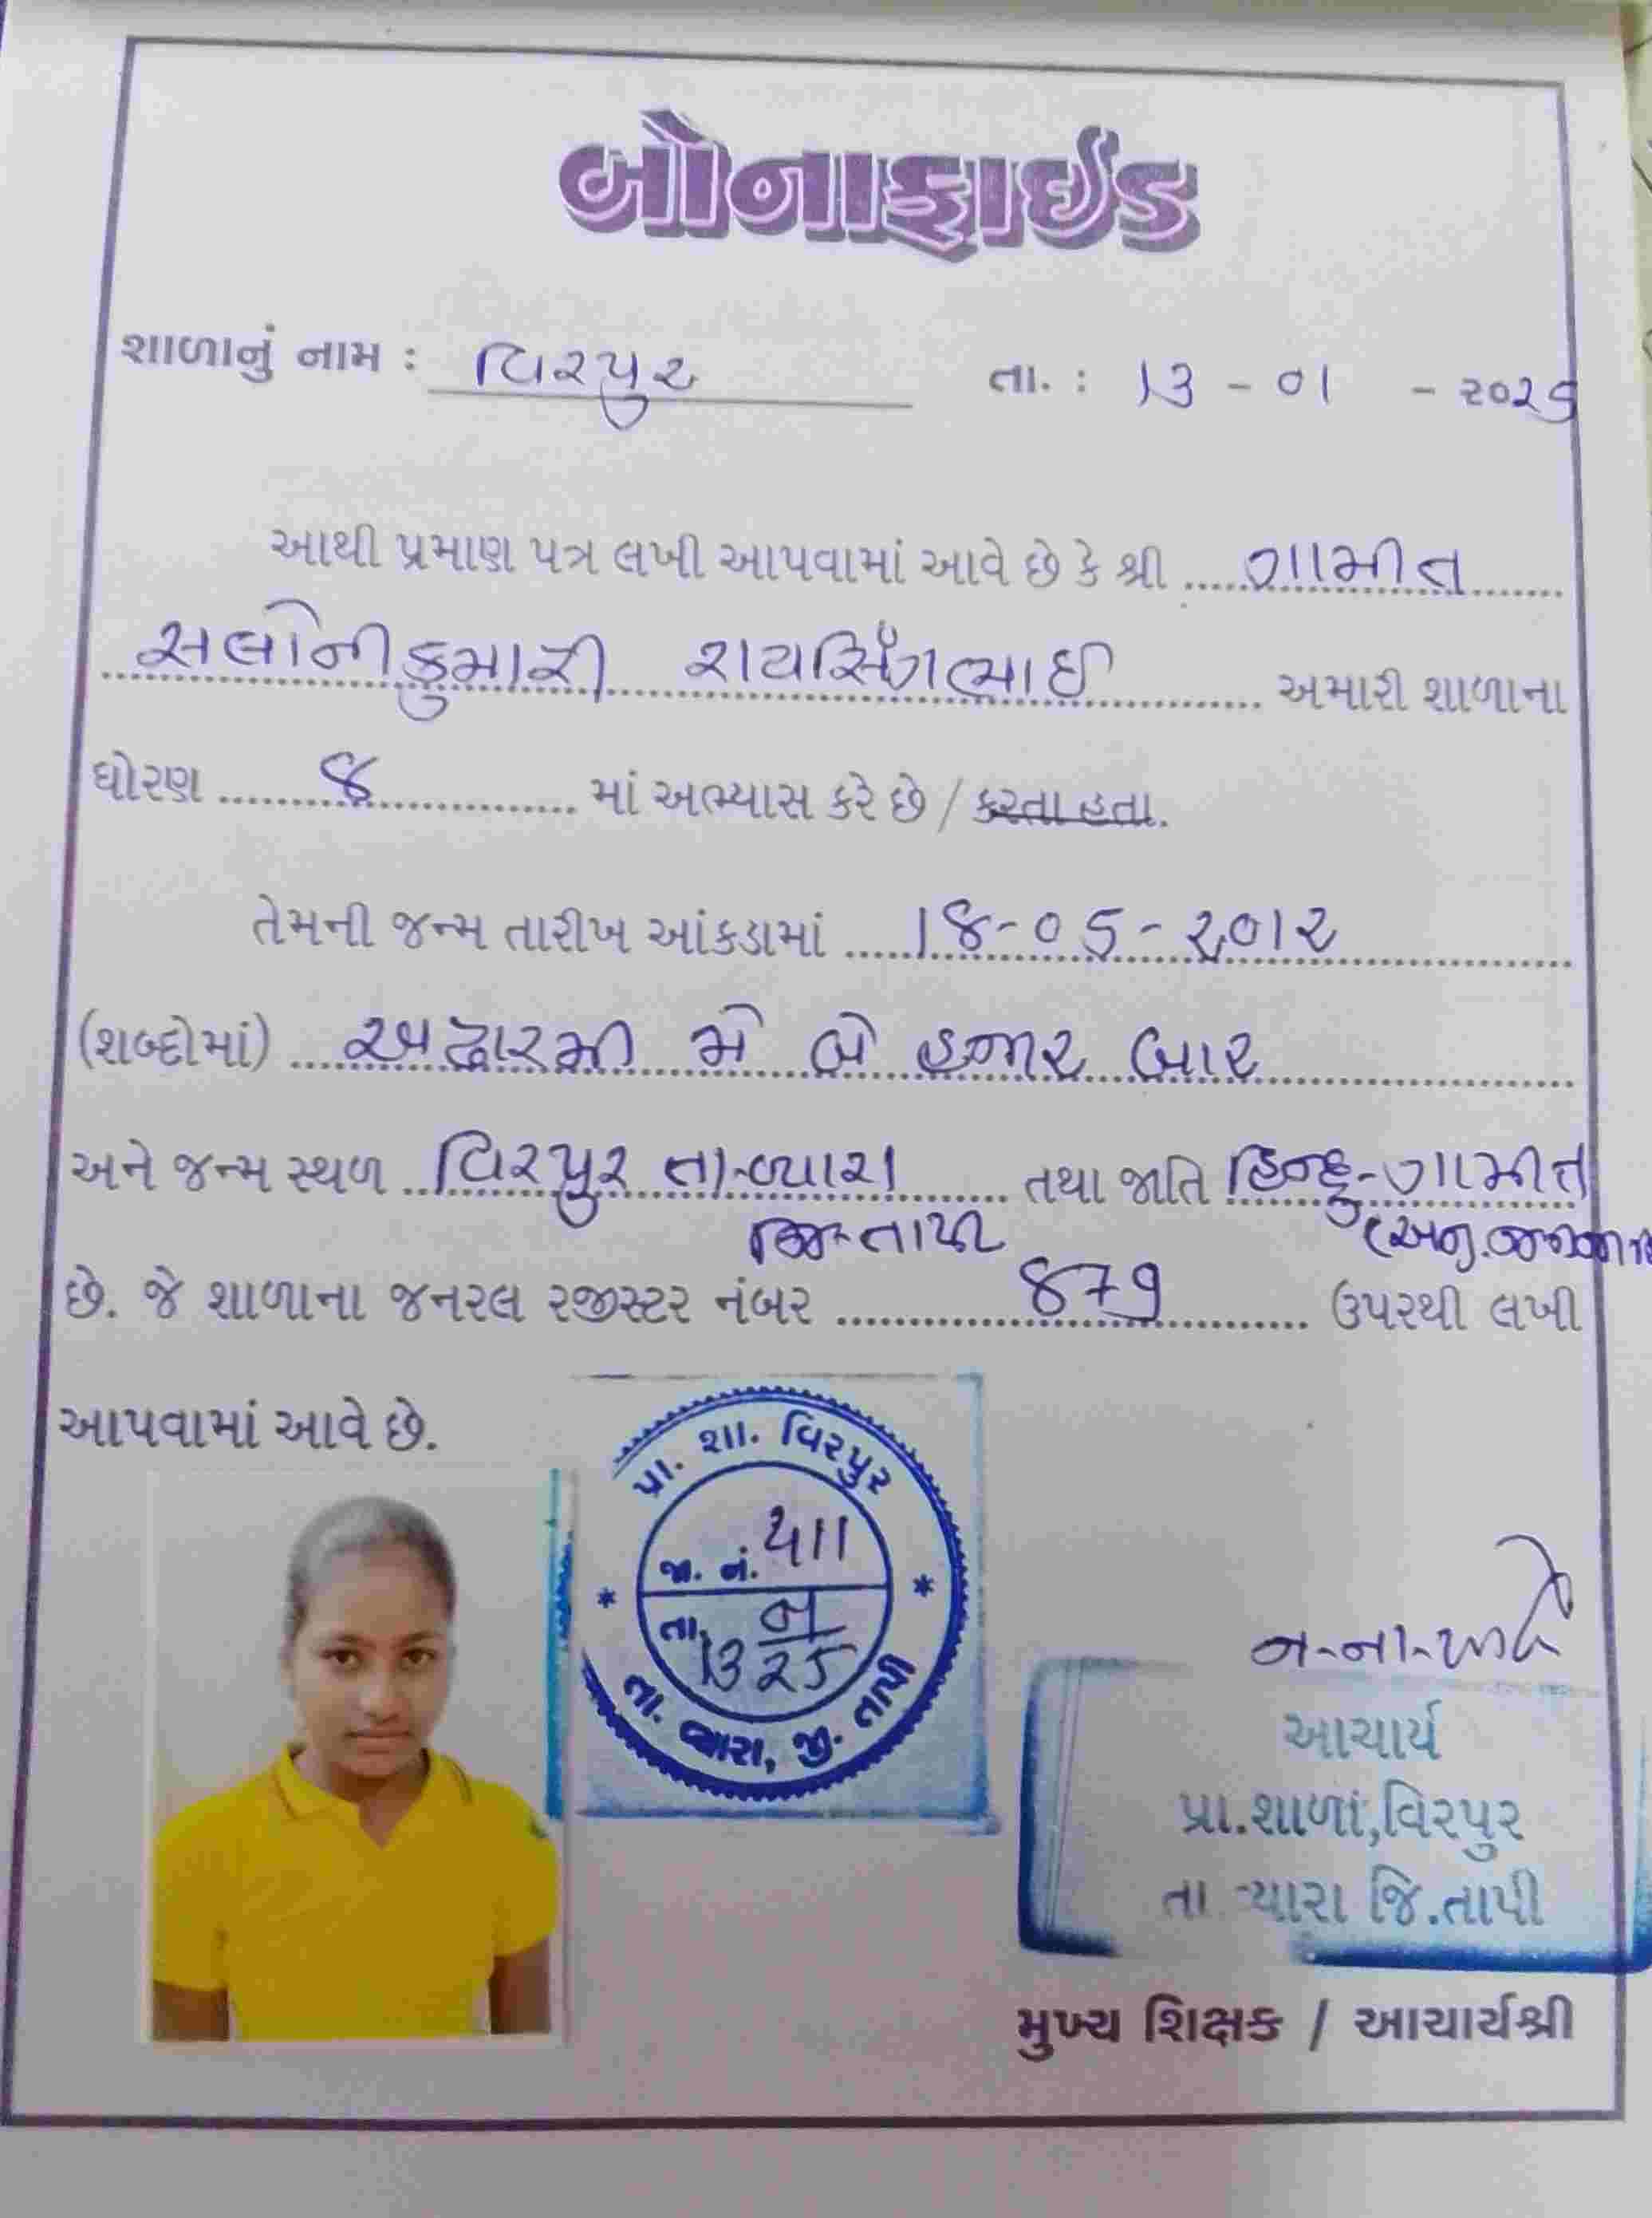 બોનાફાઈડ
શાળાનું નામ : વિરપુર તા. : ૧૩ - ૦૧ - ૨૦૨૬
આથી પ્રમાણ પત્ર લખી આપવામાં આવે છે કે શ્રી ગામીત
સલોનીકુમારી રાયસિંગભાઈ અમારી શાળાના
ધોરણ ૪ માં અભ્યાસ કરે છે / કરતા હતા.
તેમની જન્મ તારીખ આંકડામાં ૧૪-૦૫-૨૦૧૨
(શબ્દોમાં) અઢારમી મે બે હજાર બાર
અને જન્મ સ્થળ વિરપુર તા-વ્યારા તથા જાતિ હિન્દુ-ગામીત
જિ-તાપી (અનુ.જનજાતિ
છે. જે શાળાના જનરલ રજીસ્ટર નંબર ૪૭૧ ઉપરથી લખી
આપવામાં આવે છે.
પ્રા. શા. વિરપુર
જા. નં. ૫૧૧
તા. ૧૩
તા. વ્યારા, જી. તાપી
આચાર્ય
પ્રા.શાળા,વિરપુર
તા વ્યારા જિ.તાપી
મુખ્ય શિક્ષક / આચાર્યશ્રી